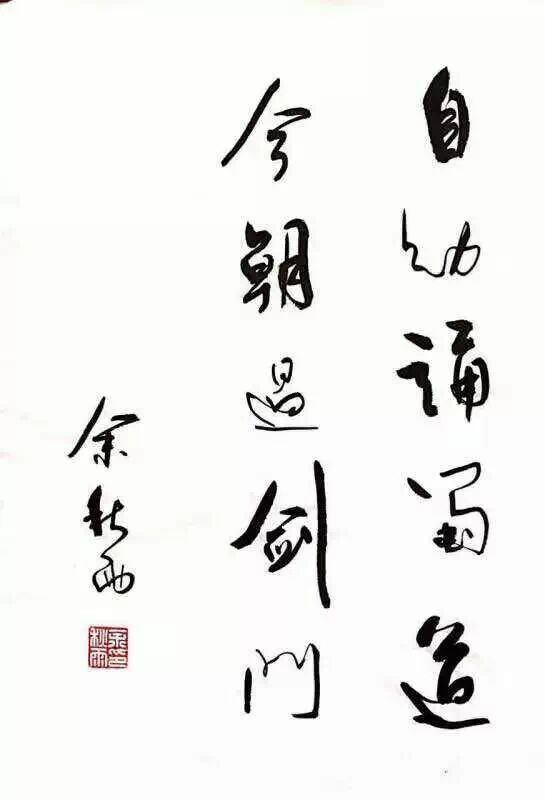 自幼诵蜀道
今朝过剑门
余秋雨
余秋雨印